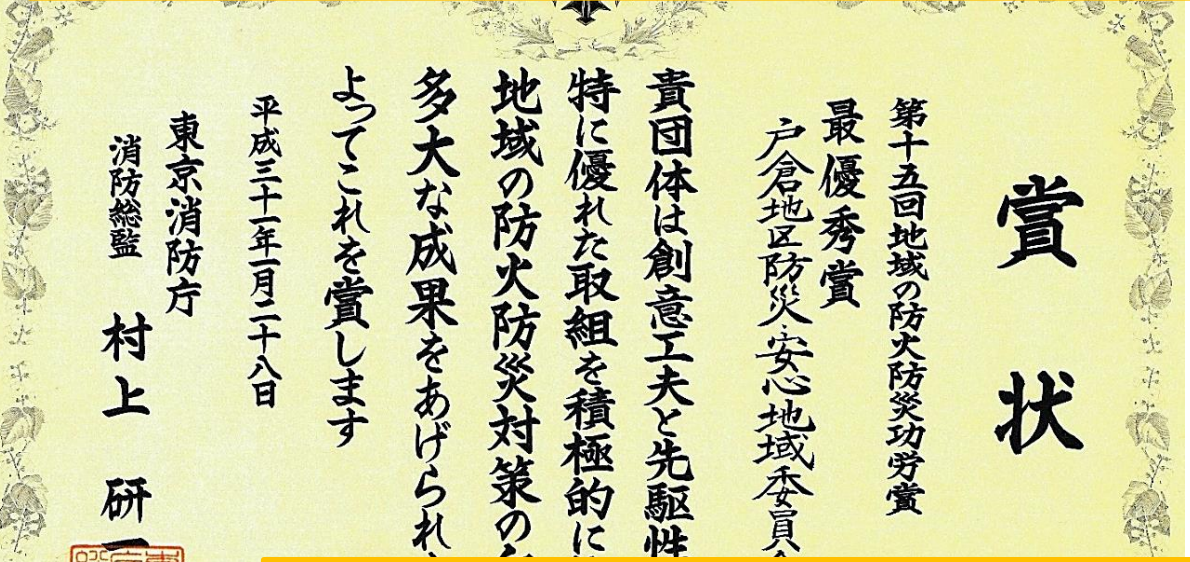 賞状
第十五回地域の防火防災功労賞
最優秀賞
戸倉地区防災・安心地域委員
貴団体は創意工夫と先駆性
特に優れた取組を積極的に
地域の防火防災対策の
多大な成果をあげられ
よってこれを賞します
平成三十一年一月二十八日
東京消防庁
消防総監 村上 研一